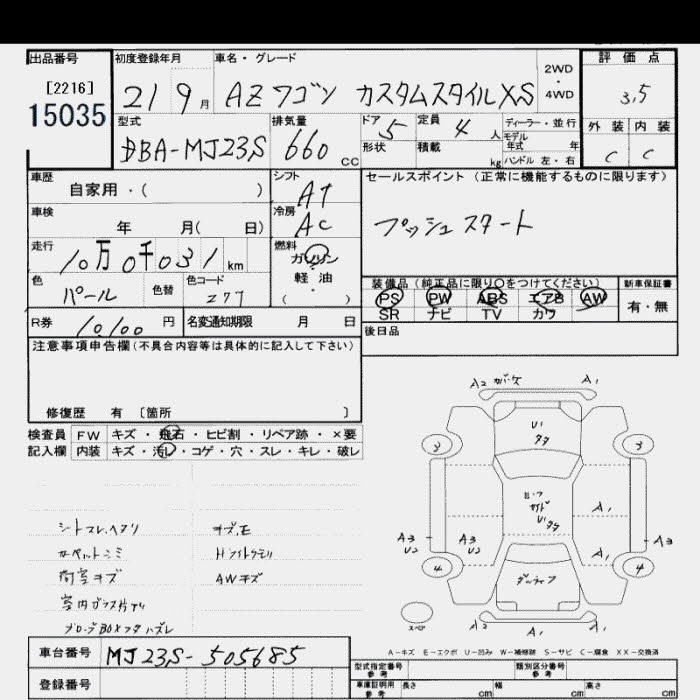 出品番号 初度登録年月 車名・グレード 2WD・4WD 評価点
[2216]
15035
21 9月 AZワゴン カスタムスタイルXS 3,5
型式 排気量 ドア 定員 ディーラー・並行 外装 内装
DBA-MJ23S 660cc 5 4人 モデル年式 年 C C
形状 積載 kg ハンドル 左・右
車歴 シフト セールスポイント(正常に機能するものに限ります)
自家用・( ) AT
プッシュスタート
車検 冷房
年 月( 日) AC
走行 燃料
10万0千031km ガソリン
軽油
( )
色 色替 色コード 装備品(純正品に限り○をつけてください) 新車保証書
パール Z77 PS PW ABS エアB AW 有・無
SR ナビ TV カワ
R券 10100円 名変通知期限 月 日 後日品
注意事項申告欄(不具合内容等は具体的に記入して下さい)
修復歴 有 〔箇所 〕
検査員 FW キズ・飛石・ヒビ割・リペア跡・×要
記入欄 内装 キズ・汚レ・コゲ・穴・スレ・キレ・破レ
シートスレ、ヘタリ
カーペットシミ
荷室キズ
AWキズ
A2 A1
U1
3 3
A1
A3 U2 A3 U2 A3
A1
4 4
スペア A2 A1
A-キズ E-エクボ U-凹み W-補修跡 S-サビ C-腐食 XX-交換済
車台番号 MJ23S-505685
登録番号
型式指定番号 参考 類別区分番号 参考
車庫証明用 参考 長さ cm 幅 cm 高さ cm